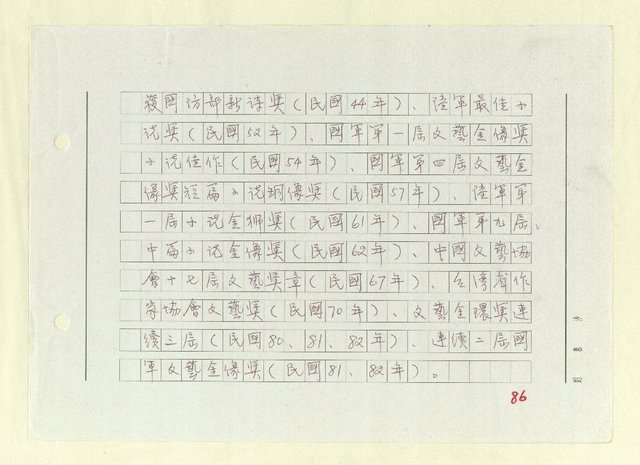 獲國防部新詩獎(民國44年)、陸軍最佳小
說獎(民國52年)、國軍第一屆文藝金像獎
小說佳作(民國54年)、國軍第四屆文藝金
像獎短篇小說銅像獎(民國57年)、陸軍第
一屆小說金獅獎(民國61年)、國軍第九屆、
中篇小說金像獎(民國62年)、中國文藝協
會十七屆文藝獎章(民國67年)、台灣省作
家協會文藝獎(民國70年)、文藝金環獎連
續三屆(民國80、81、82年)、連續二屆國
軍文藝金像獎(民國81、82年)。
86